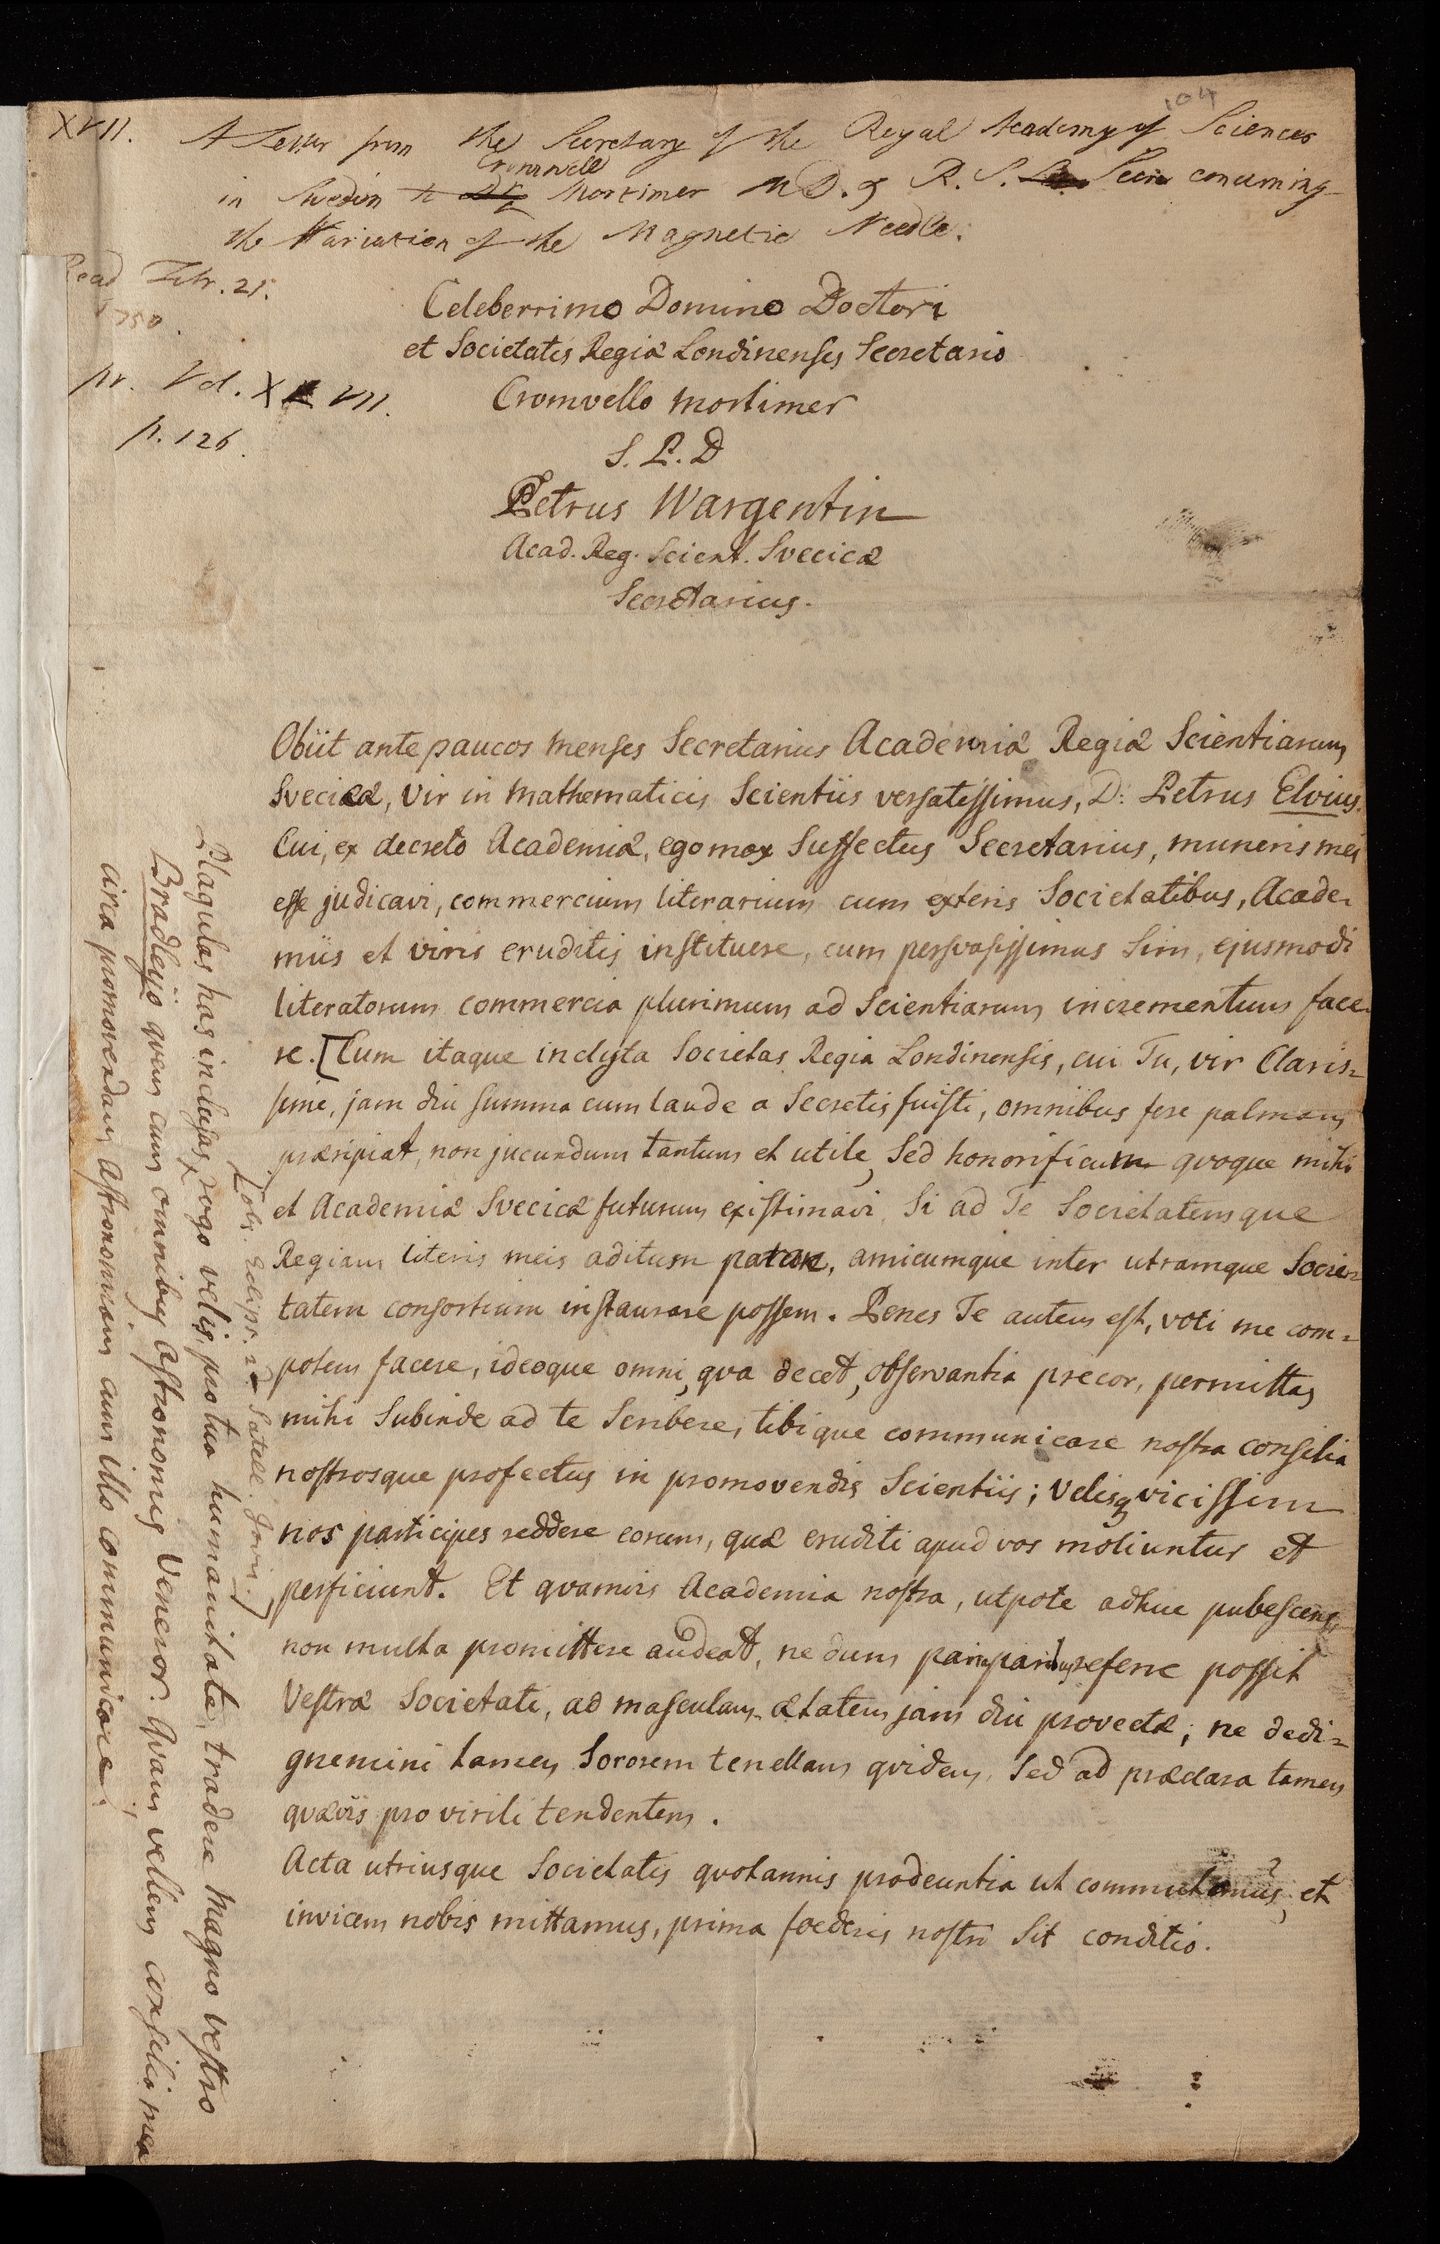 104
XVII. A Letter from the Secretary of the Royal Academy of Sciences
in Sweden to Cromwell Mortimer M.D. & R. S. Secr. concerning
the Variation of the Magnetic Needle.
Read Febr. 21.
1750.
pr. Vol. XLVII.
p. 126.
Celeberrimo Domino Doctori
et Societatis Regiæ Londinensis Secretario
Cromvello Mortimer
S. P. D
Petrus Wargentin
Acad. Reg. Scient. Svecicæ
Secretarius.
Obiit ante paucos menses Secretarius Academiæ Regiæ Scientiarum
Svecicæ, vir in Mathematicis Scientiis versatissimus, D: Petrus Elvius.
Cui, ex decreto Academiæ, ego mox suffectus Secretarius, muneris mei
esse judicavi, commercium literarium cum exteris Societatibus, Acade-
miis et viris eruditis instituere, cum persvasissimus sim, ejusmodi
literatorum commercia plurimum ad Scientiarum incrementum face-
re. [Cum itaque inclyta Societas Regia Londinensis, cui Tu, vir Claris=
sime, jam diu summa cum laude a Secretis fuisti, omnibus fere palmam
præripiat, non jucundum tantum et utile, sed honorificum quoque mihi
et Academiæ Svecicæ futurum existimavi, si ad Te Societatemque
Regiam literis meis aditum , amicumque inter utramque Socie=
tatem consortium instaurare possem. Penes Te autem est, voti me com=
potem facere, ideoque omni, qva decet, observantia precor, permittas
mihi subinde ad te scribere, tibique communicare nostra consilia
nostrosque profectus in promovendis Scientiis; velisq vicissim
nos participes reddere eorum, quæ eruditi apud vos moliuntur et
perficiunt. Et qvamvis Academia nostra, utpote adhuc pubescens,
non multa promittere audeat, ne dum paria paribus referre possit
Vestræ Societati, ad masculam ætatem jam diu provectæ; ne dedi=
gnemini tamen Sororem tenellam qvidem, sed ad præclara tamen
quævis pro virili tendentem.
Acta utriusque Societatis quotannis prodeuntia ut commutemus, et
invicem nobis mittamus, prima foederis nostri sit conditio.
Plagulas has inclusas, rogo velis, pro tua humanitate, tradere Magno vestro
[Tab. Eclips. 2d Satell. Jovis.]
Bradleyo quem cum omnibus Astronomis Veneror. Qvam vellem consilia mea
circa promovendam Astronomiam cum illo communicare.